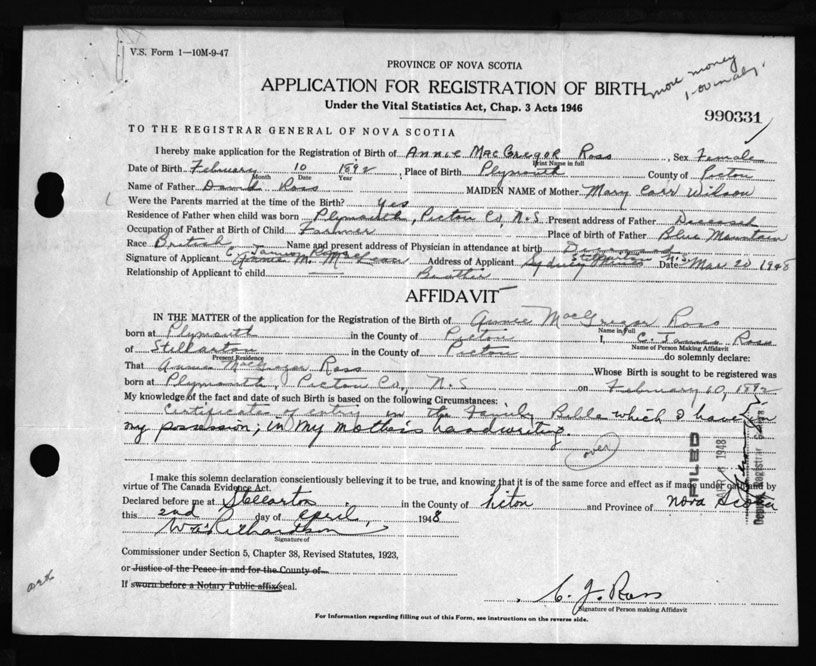 V.S. Form 1—10M-9-47
PROVINCE OF NOVA SCOTIA
APPLICATION FOR REGISTRATION OF BIRTH
more money
Under the Vital Statistics Act, Chap. 3 Acts 1946
990331
TO THE REGISTRAR GENERAL OF NOVA SCOTIA
I hereby make application for the Registration of Birth of Annie MacGregor Ross, Sex Female
Print Name in full
Date of Birth February 10 1892, Place of Birth Plymouth County of Pictou
Month Date Year
Name of Father David Ross MAIDEN NAME of Mother Mary Carr Wilson
Were the Parents married at time of the Birth? Yes
Residence of Father when child was born Plymouth, Pictou Co, N.S. Present address of Father Deceased
Occupation of Father at Birth of Child Farmer Place of birth of Father Blue Mountain
Race British Name and present address of Physician in attendance at birth Deceased
C. James Ross Stellarton N.S.
Signature of Applicant Annie M. MacLean Address of Applicant Sydney Mines Date Mar 20 1948
Relationship of Applicant to child Brother
AFFIDAVIT
IN THE MATTER of the application for the Registration of the Birth of Annie MacGregor Ross
Name in full
born at Plymouth in the County of Pictou I, C. James Ross
Name of Person Making Affidavit
of Stellarton in the County of Pictou do solemnly declare:
Present Residence
That Annie MacGregor Ross Whose Birth is sought to be registered was
born at Plymouth, Pictou Co., N.S on February 10, 1892
My knowledge of the fact and date of such Birth is based on the following Circumstances:
Certificates of entry in the Family Bible which I have in
my possession; in my mother's handwriting.
over
FILED
1948
I make this solemn declaration conscientiously believing it to be true, and knowing that it is of the same force and effect as if made under oath and by
virtue of The Canada Evidence Act.
Declared before me at Stellarton in the County of Picton and Province of Nova Scotia
this 2nd day of April, 1948
W. A. Richardson
Signature of
Commissioner under Section 5, Chapter 38, Revised Statutes, 1923,
or Justice of the Peace in and for the County of
If sworn before a Notary Public affix seal.
C. J. Ross
Signature of Person making Affidavit
For Information regarding filling out of this Form, see instructions on the reverse side.